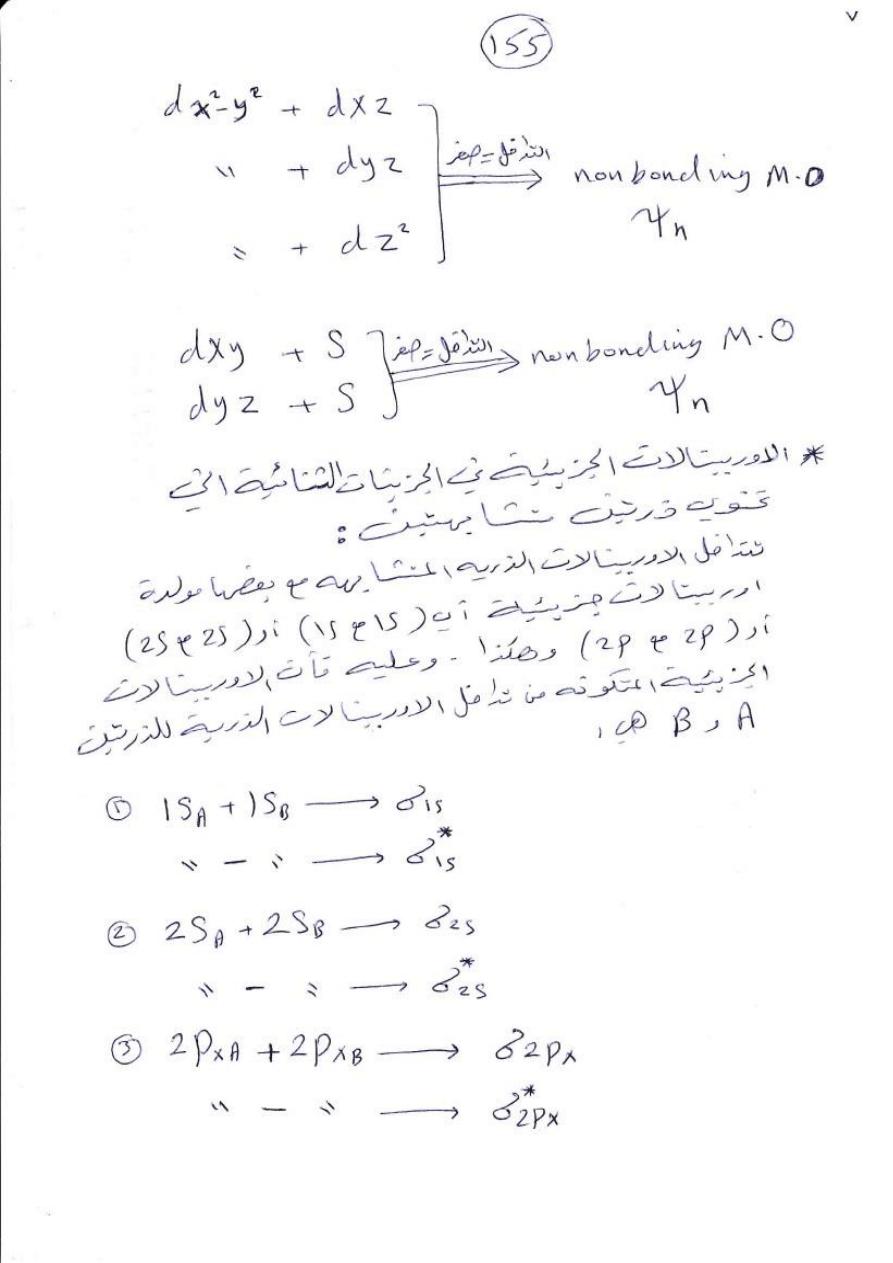 ٧
155
dx²-y² + dxz
〃 + dyz
〃 + dz²
التداخل = صفر
nonbonding M.O
Ψn
dxy + S
dyz + S
التداخل = صفر
nonbonding M.O
Ψn
* الاوربيتالات الجزيئية في الجزيئات الثنائية التي
تحتوي ذرتين متشابهتين :
تتداخل الاوربيتالات الذريه المتشابهه مع بعضها مولدة
اوربيتالات جزيئية أي (1S مع 1S) أو (2S مع 2S)
أو (2P مع 2P) وهكذا . وعليه فأن الاوربيتالات
الجزيئية المتكونه من تداخل الاوربيتالات الذرية للذرتين
A و B هي ،
① 1S_A + 1S_B ⟶ σ1S
〃 − 〃 ⟶ σ*1S
② 2S_A + 2S_B ⟶ σ2S
〃 − 〃 ⟶ σ*2S
③ 2PxA + 2PxB ⟶ σ2Px
〃 − 〃 ⟶ σ*2Px